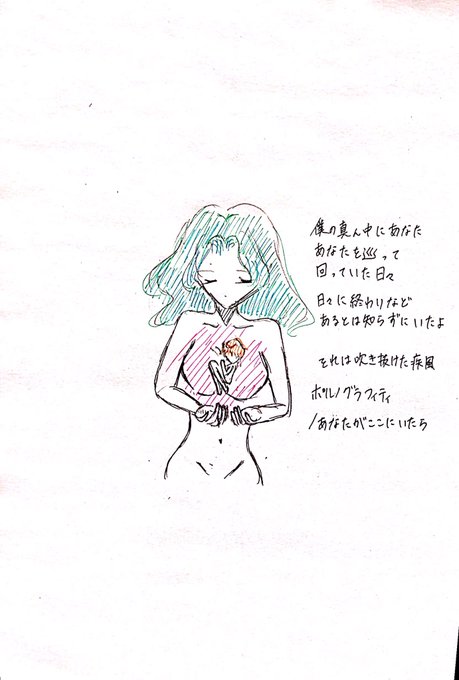 僕の真ん中にあなた
あなたを巡って
回っていた日々
日々に終わりなど
あるとは知らずにいたよ
それは吹き抜けた疾風
ポルノグラフィティ
/あなたがここにいたら